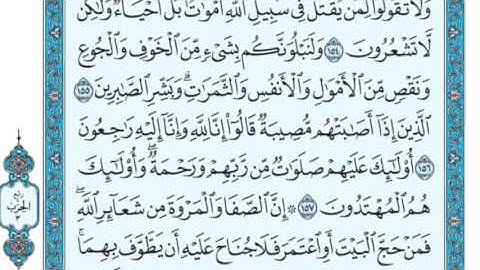 وَلَا تَقُولُوا۟ لِمَن يُقْتَلُ فِى سَبِيلِ ٱللَّهِ أَمْوَٰتٌۢ ۚ بَلْ أَحْيَآءٌ وَلَٰكِن
لَّا تَشْعُرُونَ ١٥٤ وَلَنَبْلُوَنَّكُم بِشَىْءٍ مِّنَ ٱلْخَوْفِ وَٱلْجُوعِ
وَنَقْصٍ مِّنَ ٱلْأَمْوَٰلِ وَٱلْأَنفُسِ وَٱلثَّمَرَٰتِ ۗ وَبَشِّرِ ٱلصَّٰبِرِينَ ١٥٥
ٱلَّذِينَ إِذَآ أَصَٰبَتْهُم مُّصِيبَةٌ قَالُوٓا۟ إِنَّا لِلَّهِ وَإِنَّآ إِلَيْهِ رَٰجِعُونَ
١٥٦ أُو۟لَٰٓئِكَ عَلَيْهِمْ صَلَوَٰتٌ مِّن رَّبِّهِمْ وَرَحْمَةٌ ۖ وَأُو۟لَٰٓئِكَ
هُمُ ٱلْمُهْتَدُونَ ١٥٧ ۞ إِنَّ ٱلصَّفَا وَٱلْمَرْوَةَ مِن شَعَآئِرِ ٱللَّهِ ۖ
فَمَنْ حَجَّ ٱلْبَيْتَ أَوِ ٱعْتَمَرَ فَلَا جُنَاحَ عَلَيْهِ أَن يَطَّوَّفَ بِهِمَا ۚ
ربع
الحزب